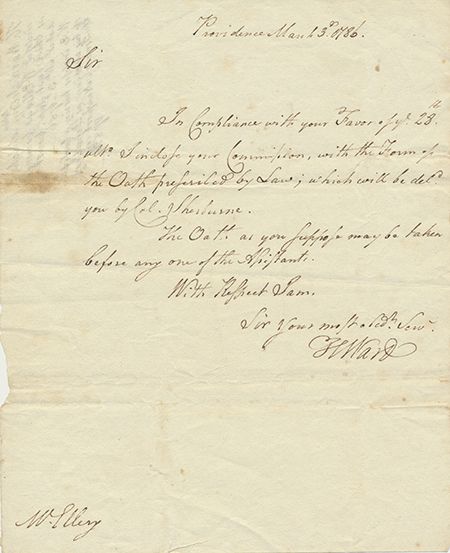 Providence March 3d 1786.
Sir
In Compliance with your Favor of ye 23d
ulto I inclose your Commission, with the Form of
the Oath prescribed by Law; which will be deld
you by Col. Sherburne.
The Oath as you suppose may be taken
before any one of the Assistant.
With Respect I am,
Sir Your most obedt Serv.
H Ward
Mr Ellery